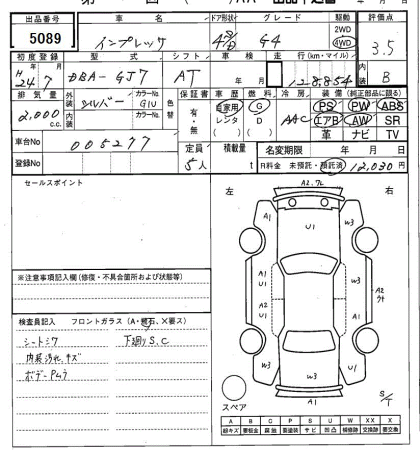 出品番号 車名 ドア形状 グレード 駆動 評価点
5089 インプレッサ 4 G4 2WD 4WD 3.5
初度登録 型式 シフト 車検 走行(km・マイル) 内装
H24年7月 DBA-GJ7 AT 年 月 128,854 B
排気量 外装 カラーNo. 色替 保証書 車歴 燃料 冷房 装備(純正部品に限る)
2,000c.c. シルバー G1U 有・無 自家用 レンタ G D AAC PS PW ABS
エアB AW SR
革 ナビ TV
車台No 005277
定員 積載量 名変期限 年 月 日
登録No 5人 t R料金 未預託・預託済 12,030円
セールスポイント
左 右
A2. A1 U1 W3
A1 U1 W3 A2
A2 U1 W3
A1 W3 W3
A1
※注意事項記入欄(修復・不具合箇所および状態等)
検査員記入 フロントガラス(A・飛石、X要ス)
シートシワ 下廻りS.C
内装汚れ.キズ
ボデーPムラ
スペア S/T
A B C P S U W XX X
線キズ 要板金 腐蝕 要塗装 サビ 凹凸 補修跡 交換跡 要交換